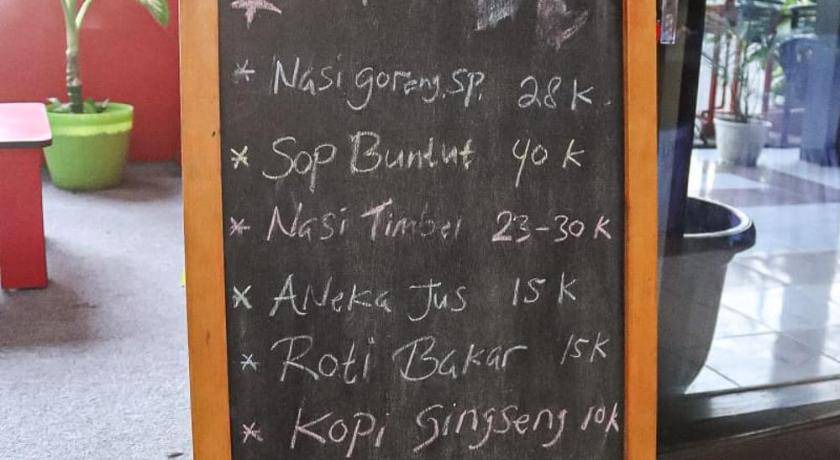 * Nasi goreng.sp. 28 K.
* Sop Buntut 40 K
* Nasi Timbel 23-30 K
* ANeka Jus 15 K
* Roti Bakar 15K
* Kopi Gingseng 10k